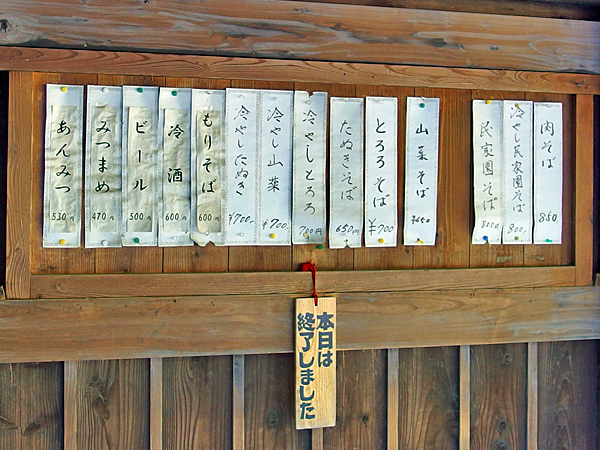 肉そば 850
冷やし民家園そば 900.
民家園そば 800円
山菜そば ¥650
とろろそば ¥700
たぬきそば 650円
冷やしとろろ 700円
冷やし山菜 ¥700-
冷やしたぬき ¥700-
もりそば 600円
冷酒 600円
ビール 500円
みつまめ 470円
あんみつ 530円
本日は
終了しました